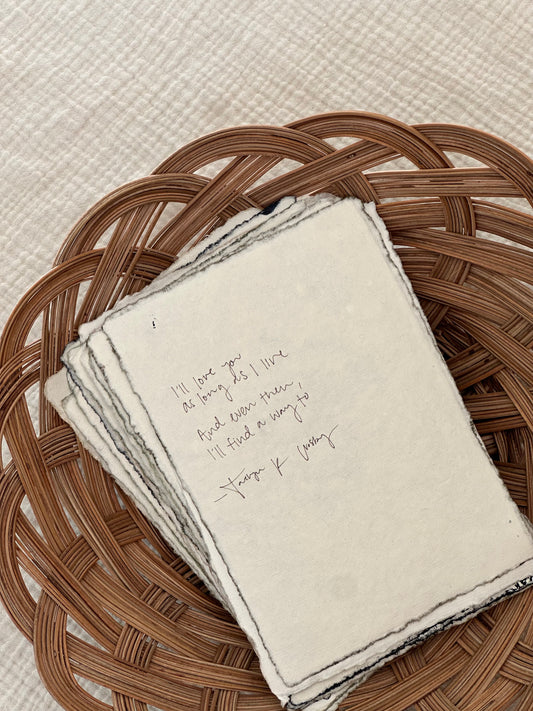 I'll love you
as long as I live
And even then,
I'll find a way to
K